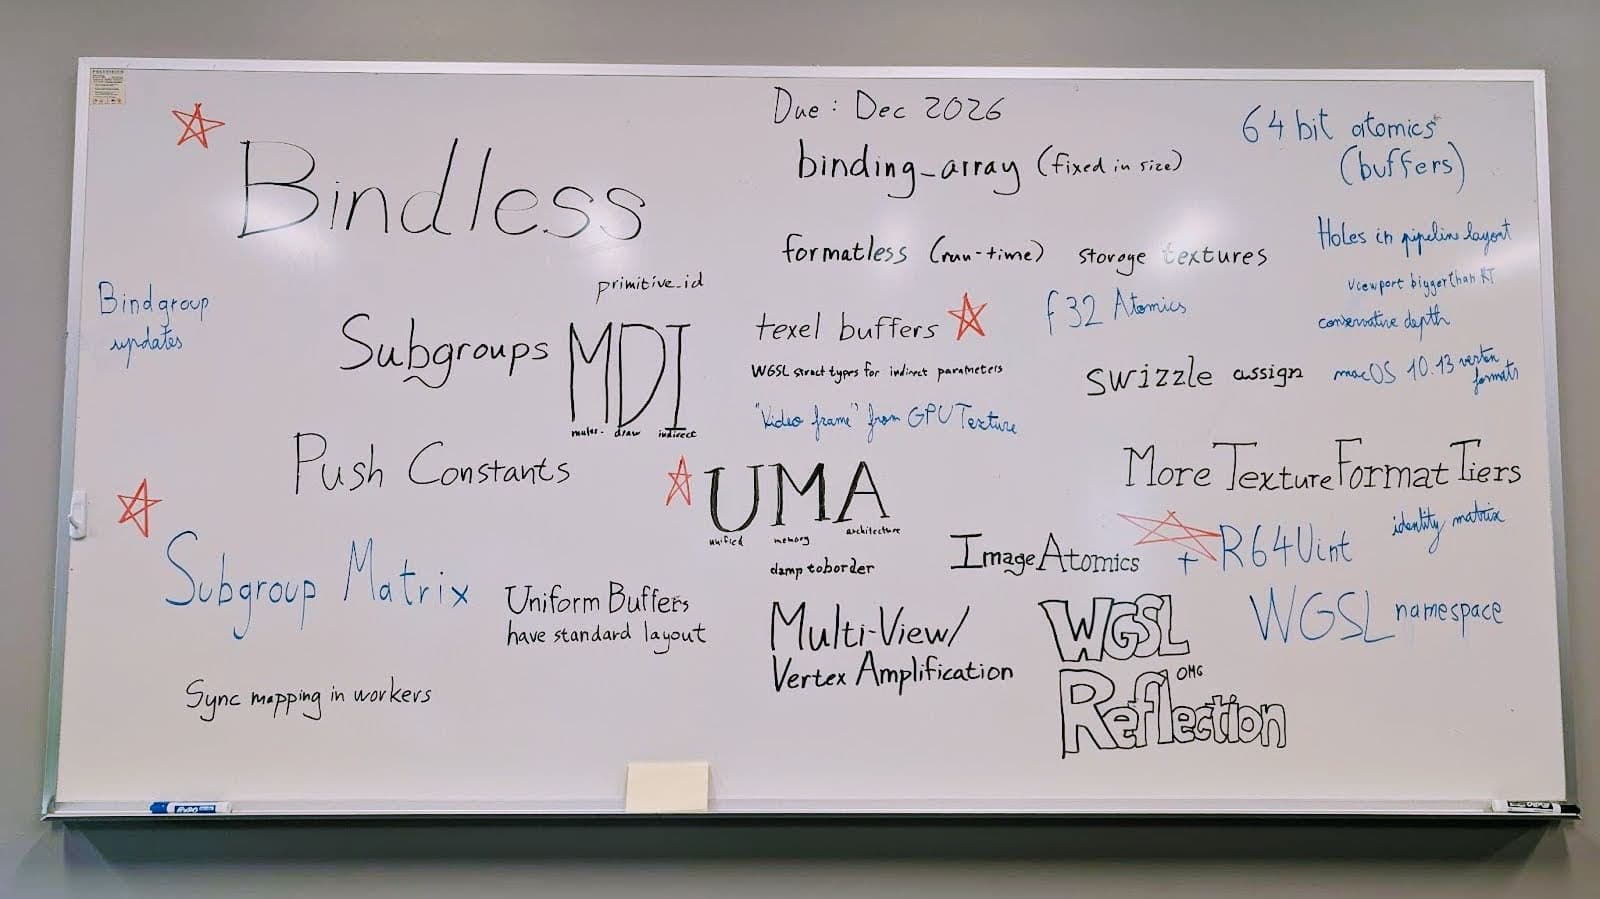 Due: Dec 2026
64 bit atomics
(buffers)
Bindless
binding_array (fixed in size)
Holes in pipeline layout
formatless (run-time) storage textures
viewport bigger than RT
primitive_id
Bindgroup
updates
f32 Atomics
conservative depth
texel buffers
Subgroups
MDI
multi- draw indirect
WGSL struct types for indirect parameters
swizzle assign
macOS 10.13 vertex
formats
"Video frame" from GPUTexture
Push Constants
More Texture Format Tiers
UMA
unified memory architecture
identity matrix
Image Atomics + R64Uint
clamp to border
Subgroup Matrix
Uniform Buffers
have standard layout
Multi-View/
Vertex Amplification
WGSL
Reflection
OMG
WGSL namespace
Sync mapping in workers
EXPO